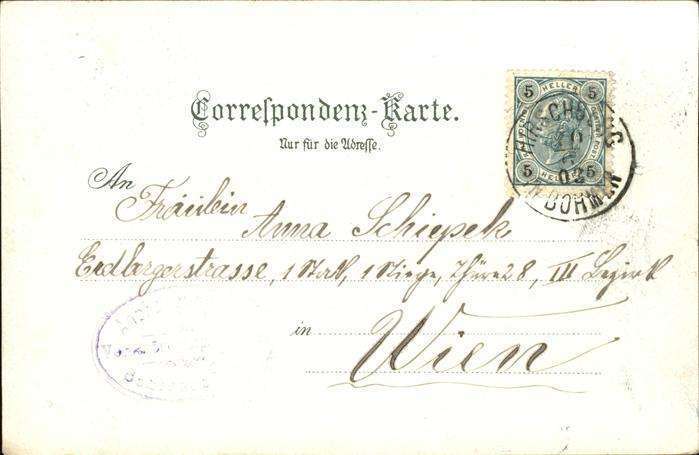 Correspondenz-Karte.
Nur für die Adresse.
5 HELLER 5
5 HELLER 5
02
BÖHMEN
An Fräulein
Anna Schiepek
Erdbergerstrasse, 1 Stock, 1 Stiege, Thüre 28, III Bezirk
in Wien